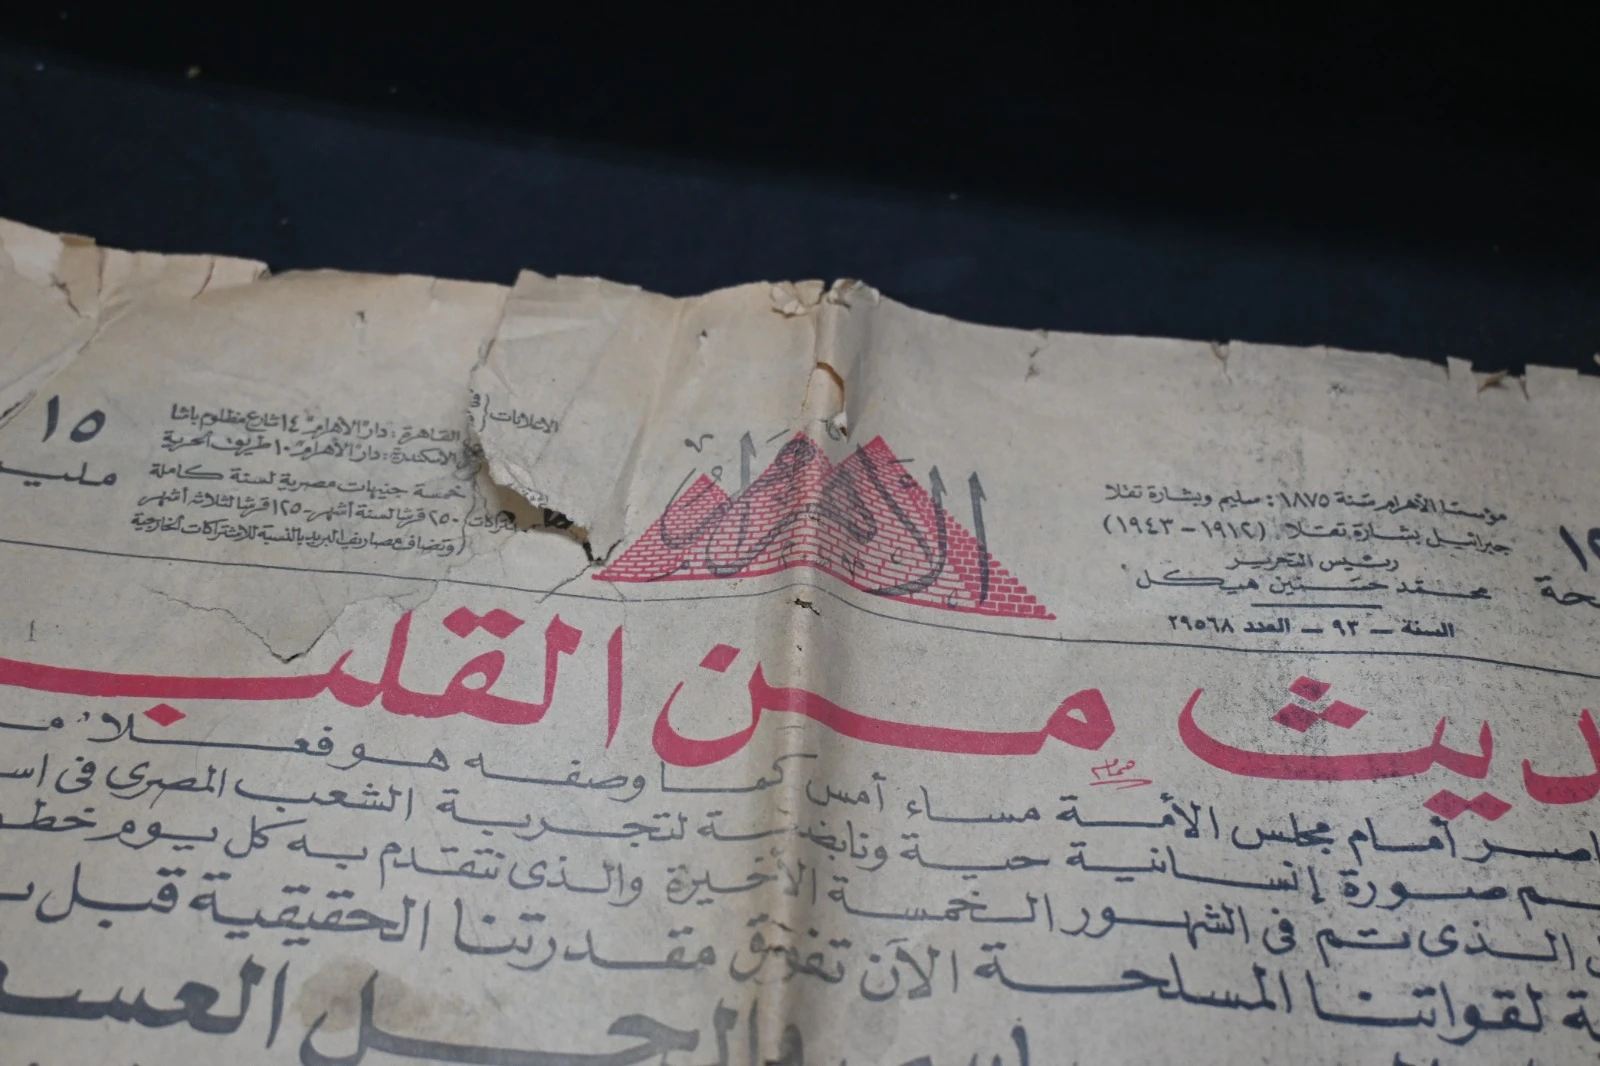 مؤسسا الأهرام سنة ١٨٧٥ : سليم وبشارة تقلا
جبرائيل بشارة تقلا (١٩١٢ - ١٩٤٣)
رئيس التحرير
محمد حسنين هيكل
السنة - ٩٣ - العدد ٢٩٥٦٨
الأهرام
الاعلانات
القاهرة : دار "الأهرام" ١٤ شارع مظلوم باشا
الاسكندرية : دار "الأهرام" ١٠ طريق الحرية
خمسة جنيهات مصرية لسنة كاملة
٢٥٠ قرشا لستة أشهر - ١٢٥ قرشا لثلاثة أشهر
وتضاف مصاريف البريد بالنسبة للاشتراكات الخارجية
١٥
ديث من القلب
أمام مجلس الأمة مساء أمس كما وصفه هو فعلا
صورة إنسانية حية ونابضة لتجربة الشعب المصرى فى
الذى تم فى الشهور الخمسة الأخيرة والذى نتقدم به كل يوم
لقواتنا المسلحة الآن تفوق مقدرتنا الحقيقية قبل
والحل